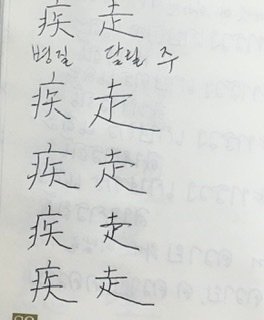 疾 走
병질 달릴 주
疾 走
疾 走
疾 走
疾 走